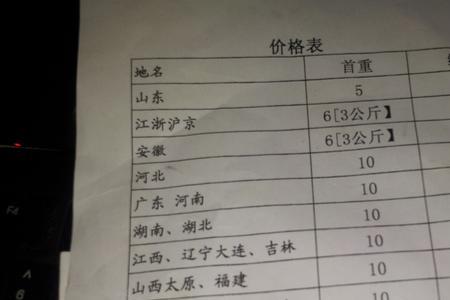 价格表
地名 首重
山东 5
江浙沪京 6[3公斤】
安徽 6[3公斤】
河北 10
广东 河南 10
湖南、湖北 10
江西、辽宁大连、吉林 10
山西太原、福建 10
F4
6